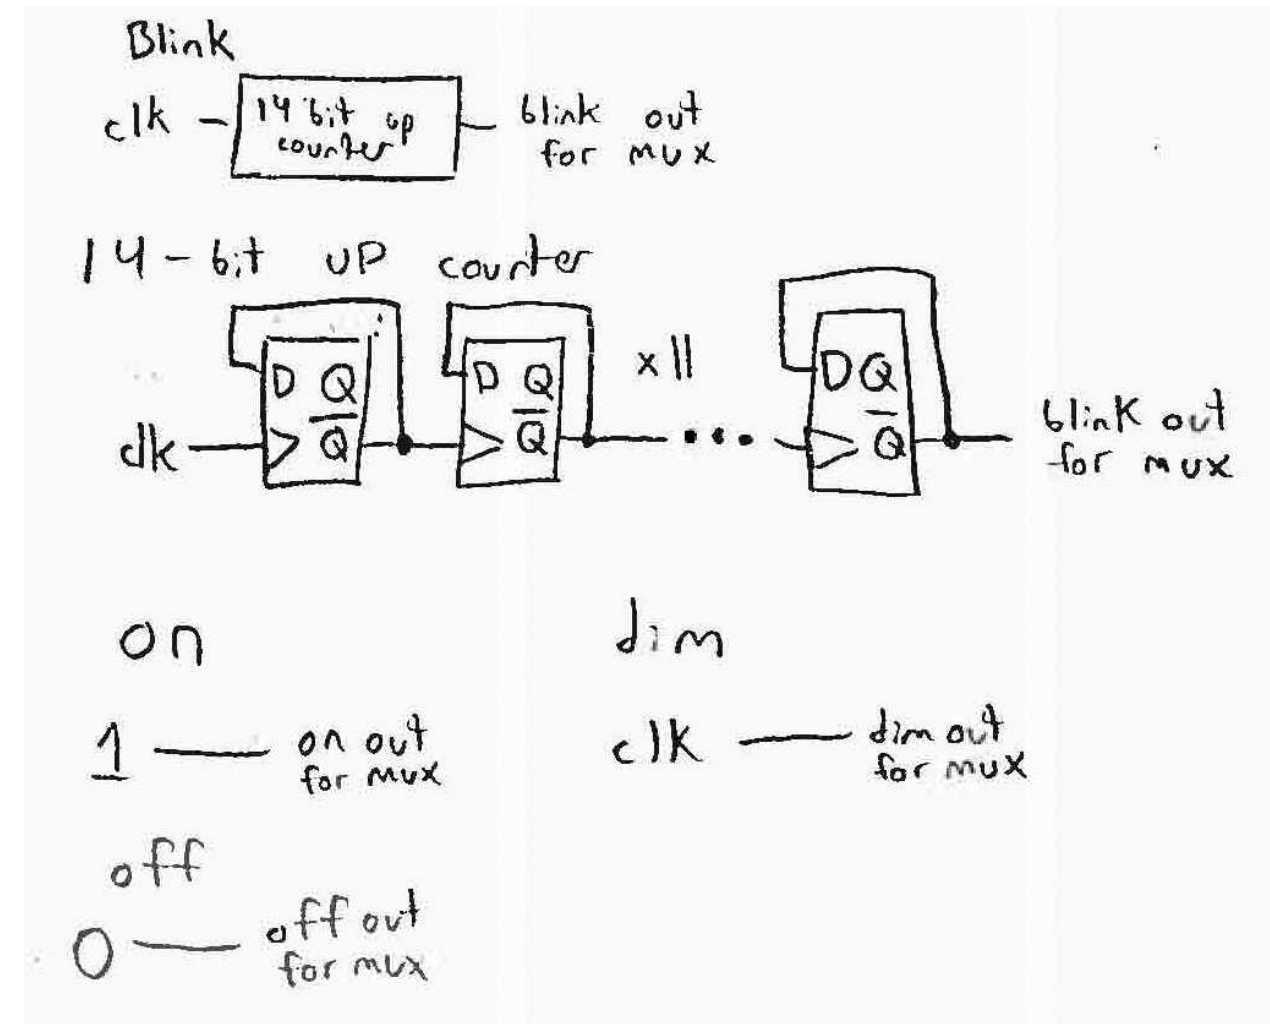 Blink
clk
14 bit up
counter
blink out
for mux
14-bit up counter
D Q
Q̅
D Q
Q̅
x11
D Q
Q̅
clk
blink out
for mux
on
1
on out
for mux
dim
clk
dim out
for mux
off
0
off out
for mux